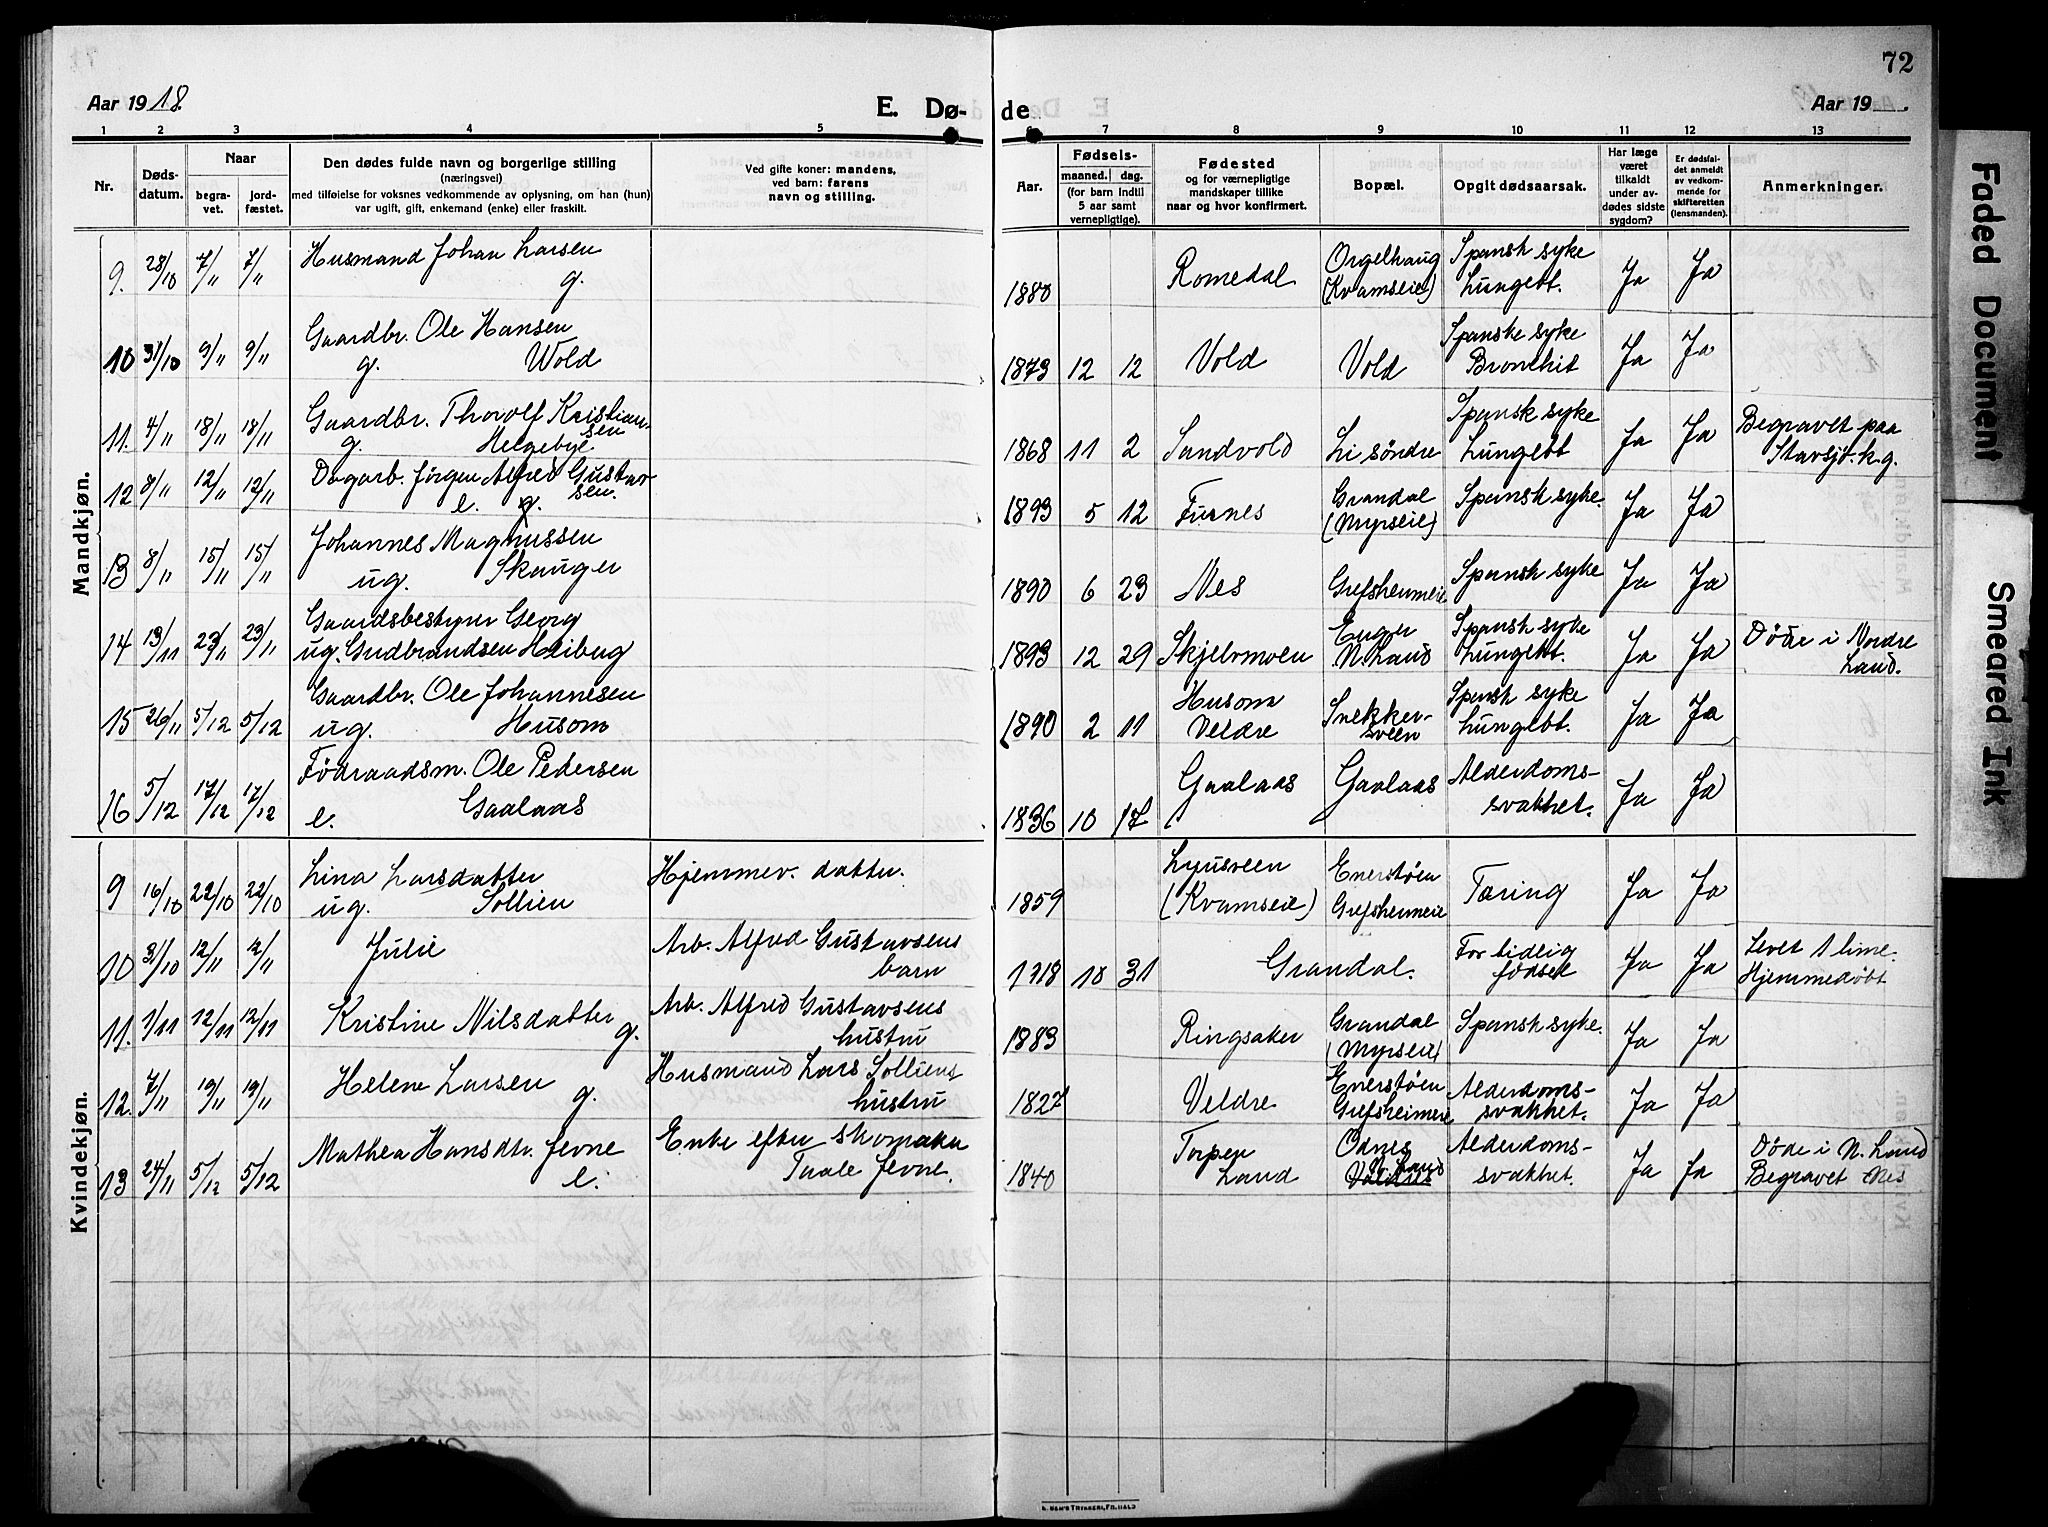 72
Aar 1918.
E. Dø-
de
Aar 19
1 2 3 4 5 6 7 8 9 10 11 12 13
Nr.
Døds-
datum.
Naar
begra-
vet.
jord-
fæstet.
Den dødes fulde navn og borgerlige stilling
(næringsvei)
med tilføielse for voksnes vedkommende av oplysning, om han (hun)
var ugift, gift, enkemand (enke) eller fraskilt.
Ved gifte koner: mandens,
ved barn: farens
navn og stilling.
Aar.
Fødsels-
maaned. dag.
(for barn indtil
5 aar samt
vernepligtige).
Fødested
og for værnepligtige
mandskaper tillike
naar og hvor konfirmert.
Bopæl.
Opgit dødsaarsak.
Har læge
været
tilkaldt
under av-
dødes sidste
sygdom?
Er dødsfal-
det anmeldt
av vedkom-
mende for
skifteretten
(lensmanden).
Anmerkninger.
Mandkjøn.
9. 28/10 7/11 7/11 Husmand Johan Larsen
g.
1880 Romedal Orgelhaug
(Kvamseie) Spansk syke
Lungebt. Ja Ja
10 31/10 9/11 9/11 Gaardbr. Ole Hansen
g. Wold
1873 12 12 Vold Vold Spanske syke
Bronchit Ja Ja
11. 4/11 18/11 18/11 Gaardbr. Thorolf Kristian-
sen
g. Helgebye
1868 11 2 Sandvold Li søndre Spansk syke
Lungebt Ja Ja Begravet paa
Stavsjø k.g.
12 8/11 12/11 12/11 Dagarb. Jørgen Alfred Gustav-
sen.
e. g.
1893 5 12 Furnes Grandal
(Myrseie) Spansk syke. Ja Ja
13 8/11 15/11 15/11 Johannes Magnussen
ug. Skauger
1890 6 23 Nes Grefsheimeie Spansk syke Ja Ja
14 13/11 23/11 23/11 Gaardsbestyrer Georg
ug. Gudbrandsen Heibug
1893 12 29 Skjelvmoen Enger
N. Land Spansk syke
Lungebt. Ja Ja Døde i Nordre
Land.
15 26/11 5/12 5/12 Gaardbr. Ole Johannesen
ug. Husom
1890 2 11 Husom
Veldre Snekker-
sveen Spansk syke
Lungebt. Ja Ja
16 5/12 17/12 17/12 Fødraadsm. Ole Pedersen
e. Gaalaas
1836 10 17 Gaalaas Gaalaas Alderdoms-
svakhet. Ja Ja
Kvindekjøn.
9 16/10 22/10 22/10 Lina Larsdatter
ug. Sollien
Hjemmev. datter.
1859 Lyusveen
(Kvamseie) Enerstøen
Grefsheimeie Tæring Ja Ja
10 31/10 12/11 12/11 Julie
Arb. Alfred Gustavsens
barn
1918 10 31 Grandal. For tidlig
fødsel Ja Ja Levet 1 time.
Hjemmedøbt
11. 1/11 12/11 12/11 Kristine Nilsdatter
g.
Arb. Alfred Gustavsens
hustru
1883 Ringsaker Grandal
(Myrseie) Spansk syke. Ja Ja
12. 7/11 19/11 19/11 Helene Larsen
g.
Husmand Lars Solliens
hustru
1827 Veldre Enerstøen
Grefsheimeie Alderdoms-
svakhet. Ja Ja
13 24/11 5/12 5/12 Mathea Hansdtr. Jevne
e.
Enke efter skomaker
Taale Jevne.
1840 Torpen
Land Odnes
N. Land
Valdres Alderdoms-
svakhet. Ja Ja Døde i N. Land
Begravet Nes
Faded Document
Smeared Ink